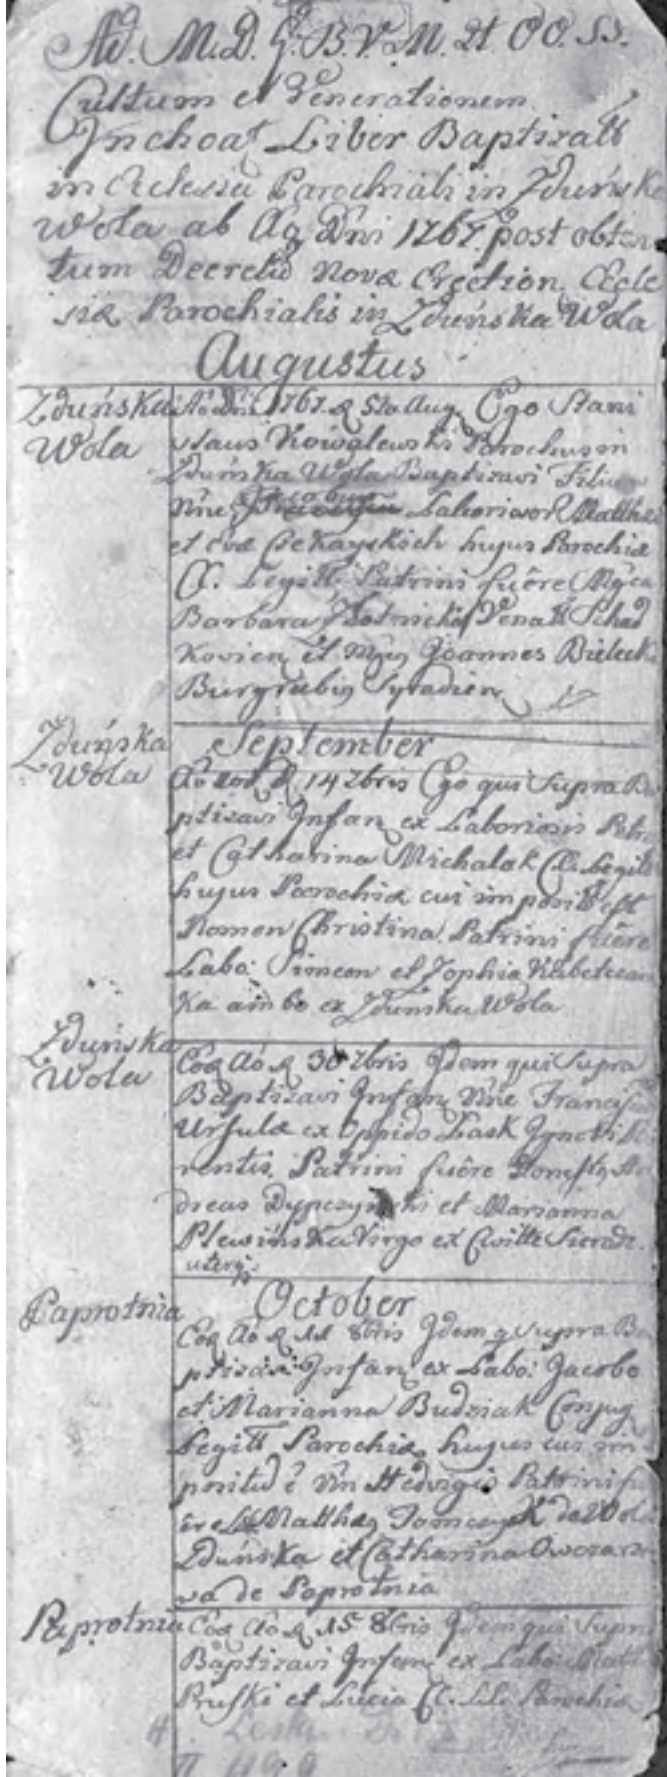 Ad. M. D. G. B. V. M. et OO. SS.
Cultum et Venerationem
Inchoat Liber Baptizatt
in Eclesia Parochiali in Zduńska
Wola ab Ao Dni 1767. post obten
tum Decretu Novæ Erection Eccle
siæ Parochialis in Zduńska Wola
Augustus
Zduńska
Wola
Ao Dni 1767. d 5ta Aug. Ego Stani
slaus Kowalewski Parochus in
Zduńska Wola Baptizavi Filium
Nne Jacobum Laboriosor Matthæ
et Evæ hujus Parochiæ
CC. Legitt. Patrini fuêre Mgca
Barbara Złotnicka Venatt Schad
kovien et Mgn Joannes Bielecki
Burgrabig Syradien
Zduńska
Wola
September
Ao eod d. 14 7bris Ego qui supra Ba
ptizavi Infan ex Laboriosis Petro
et Catharina Michalak CC. Legitt
hujus Parochiæ cui imposit est
Nomen Christina. Patrini fuêre
Labo: Simeon et Zophia
ka ambo ex Zduńska Wola
Zduńska
Wola
Eoq Ao d 30 7bris Idem qui Supra
Baptizavi Infan Nne
Ursulæ ex Oppido Lask
rentis. Patrini fuêre Honest An
dreas et Marianna
Plewińska Virgo ex
uterq
Paprotnia
October
Eoq Ao d 11 8bris Idem q supra Ba
ptizavi Infan ex Labo: Jacobo
et Marianna Budziak Conjug
Legitt Parochiæ hujus cui im
positu ê Nn Hedvigis Patrini fu
êre Matthæ Tomczyk de Wola
Zduńska et Catharina Owczarzo
wa de Paprotnia
Paprotnia
Eoq Ao d 15 8bris Idem qui Supra
Baptizavi Infan ex Labo: Matt
Pruski et Lucia CC. Parochiæ